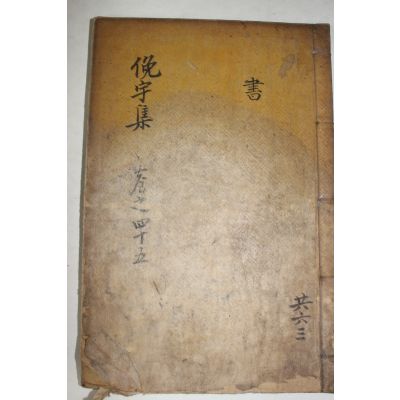 書
俛宇集
卷之四十五
共六三